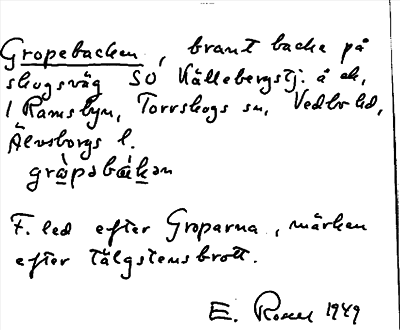 Gropebacken, brant backe på
skogsväg SO Källebergstj. å ek.
1 Ramsbyn, Torrskogs sn, Vedbo hd,
Älvsborgs l.
gràpəbákən
F. led efter Groparna, märken
efter täljstensbrott.
E. 1949